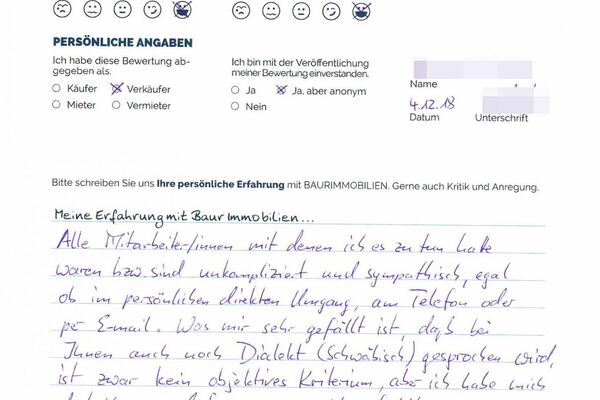 PERSÖNLICHE ANGABEN
Ich habe diese Bewertung ab-
gegeben als:
Käufer
Verkäufer
Mieter
Vermieter
Ich bin mit der Veröffentlichung
meiner Bewertung einverstanden.
Ja
Ja, aber anonym
Nein
Name
4.12.18
Datum
Unterschrift
Bitte schreiben Sie uns Ihre persönliche Erfahrung mit BAURIMMOBILIEN. Gerne auch Kritik und Anregung.
Meine Erfahrung mit Baur Immobilien...
Alle Mitarbeiter/innen mit denen ich es zu tun hatte
waren bzw. sind unkompliziert und sympathisch, egal
ob im persönlichen direkten Umgang, am Telefon oder
per E-mail. Was mir sehr gefällt ist, daß bei
Ihnen auch noch Dialekt (Schwäbisch) gesprochen wird,
ist zwar kein objektives Kriterium, aber ich habe mich